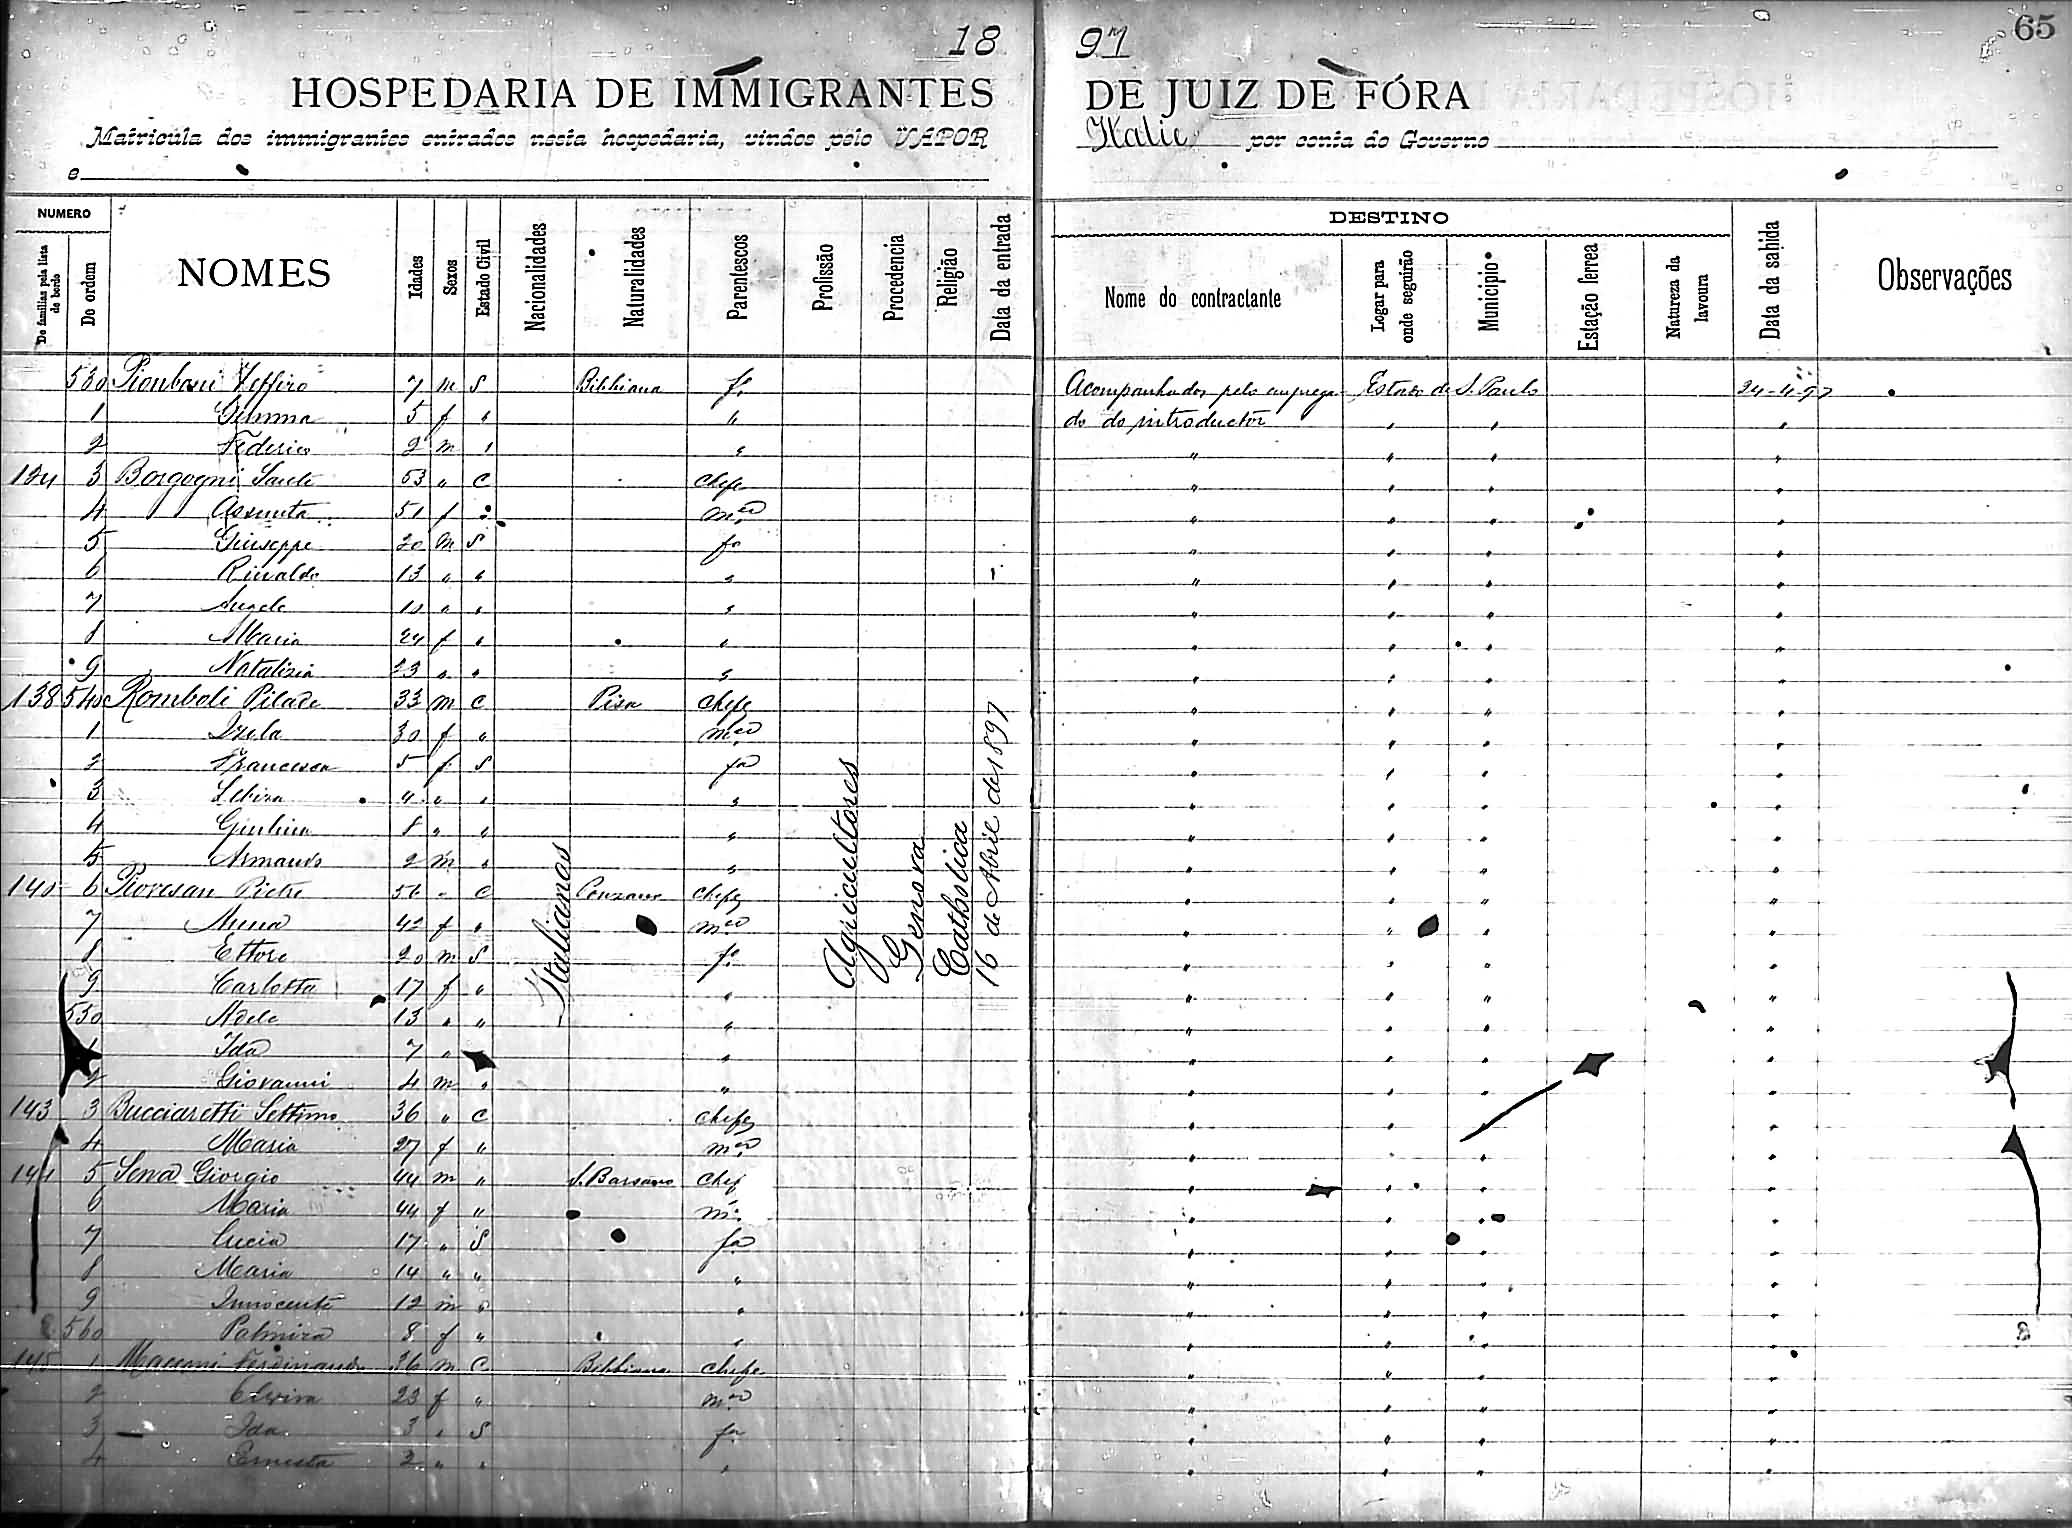 18 97 65
HOSPEDARIA DE IMMIGRANTES DE JUIZ DE FÓRA
Matricula dos immigrantes entrados nesta hospedaria, vindos pelo VAPOR Italie por conta do Governo
e
NUMERO
De familias pela lista de bordo
De ordem
NOMES
Idades
Sexos
Estado Civil
Nacionalidades
Naturalidades
Parentescos
Profissão
Procedencia
Religião
Data da entrada
DESTINO
Nome do contractante
Logar para onde seguirão
Municipio
Estação ferrea
Natureza da lavoura
Data da sahida
Observações
530 Zeffiro 7 m S Bibbiana fo Acompanhados pelo emprega Estado de S. Paulo 24-4-97
1 Gemma 5 f " " do do introductor " " "
2 Federico 2 m " " " " " "
124 3 Borgogni Sante 53 " C chefe " " " "
4 Assunta 51 f " mer " " " "
5 Giuseppe 20 m S fo " " " "
6 Rinaldo 13 " " " " " " "
7 Angelo 10 " " " " " " "
8 Maria 24 f " " " " " "
9 Natalizia 23 " " " " " " "
138 540 Romboli Pilade 33 m C Pisa chefe " " " "
1 Isola 30 f " mer " " " "
2 Francesca 5 f S fa " " " "
3 " " " " " " " "
4 Giulina 8 " " " " " " "
5 Armando 2 m " " " " " "
140 6 Piovesan Pietro 56 " C chefe " " " "
7 Anna 42 f " mer " " " "
8 Ettore 20 m S fo " " " "
9 Carlotta 17 f " " " " " "
530 Adele 13 " " " " " " "
Ida 7 " " " " " "
2 Giovanni 4 m " " " " " "
143 3 Bucciaretti Settimo 36 " C chefe " " " "
4 Maria 27 f " mer " " " "
144 5 Giorgio 44 m " chef " " " "
6 Maria 44 f " m " " " "
7 Lucia 17 " S fa " " " "
8 Maria 14 " " " " " " "
9 Innocente 12 m " " " " " "
560 Palmira 8 f " " " " " "
145 1 Ferdinando 36 m C Bibbiana chefe " " " "
2 Elvira 23 f " mer " " " "
3 Ida 3 " S fa " " " "
4 Ernesta 2 " " " " " " "
Italianos
Agricultores
Genova
Catholica
16 de Abril de 1897